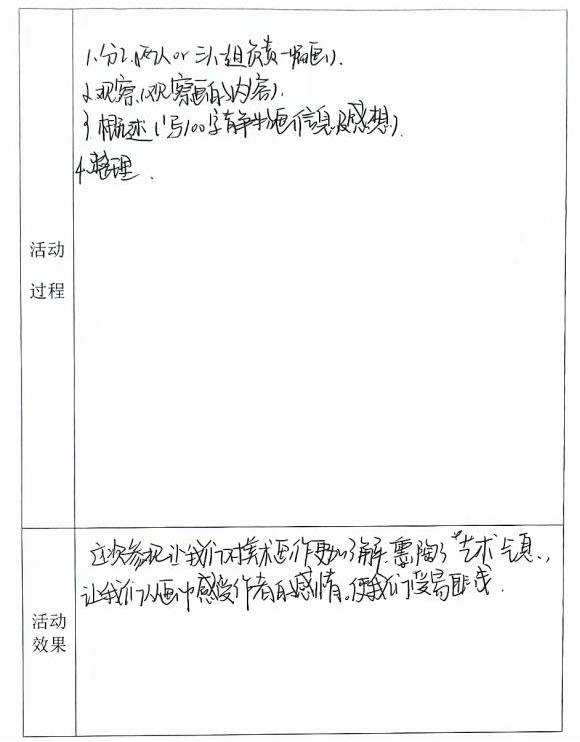 1.分工.(两人or三人组负责一幅画).
2.观察.(观察画的内容).
3.概述(写100字的静物画信息及感想)
4.整理.
活动
过程
这次参观让我们对美术画作更加了解.熏陶了艺术气息.,
让我们从画中感受作者的感情。使我们受易匪浅.
活动
效果